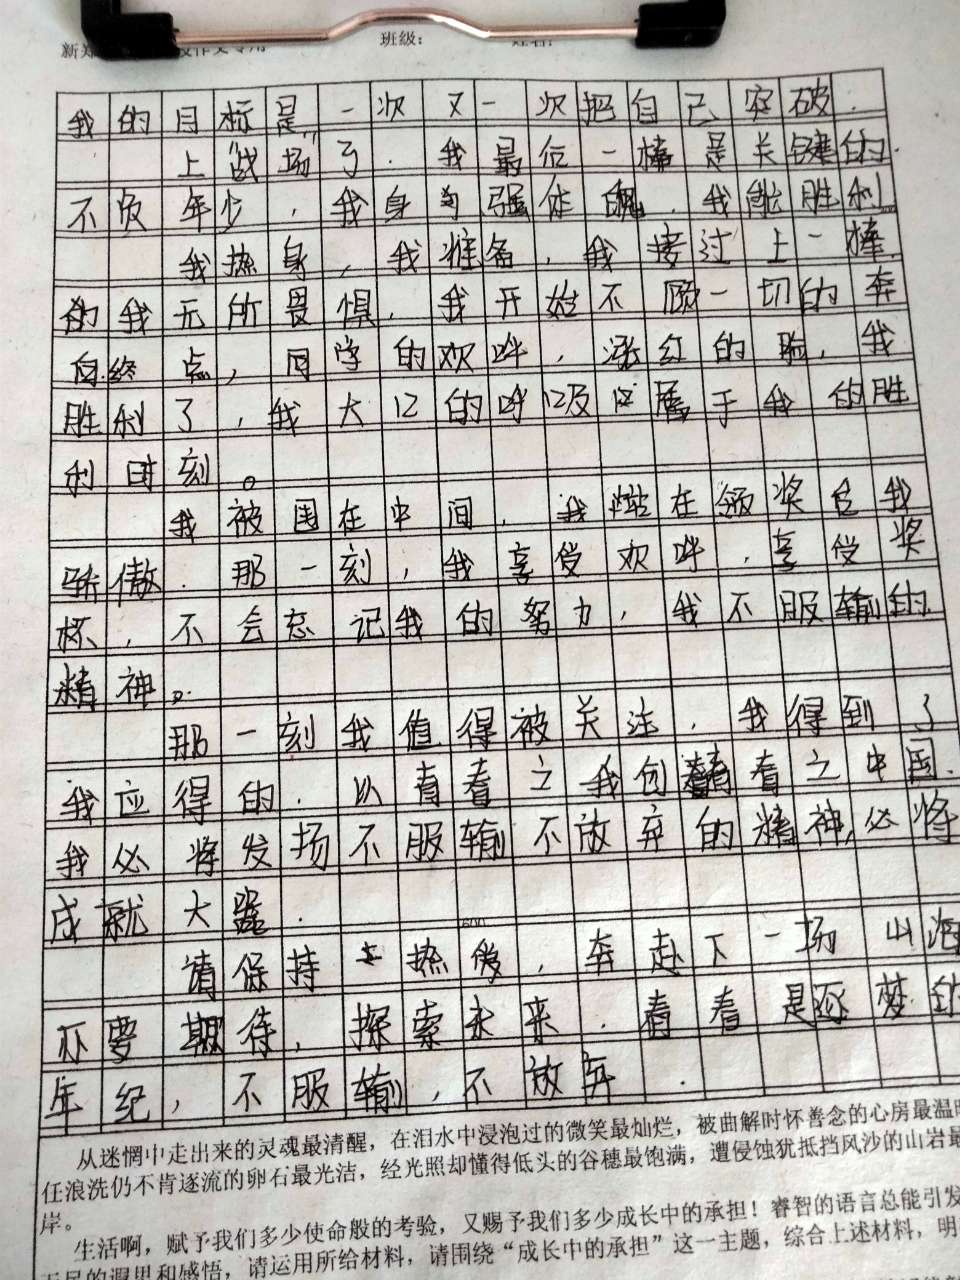 班级：
我的目标是一次又一次把自己突破.
上“战场”了.我最后一棒是关键的.
不负年少，我身为强体魄.我能胜利.
我热身，我准备，我接过上一棒
的我无所畏惧.我开始不顾一切的奔
向终点，同学的欢呼，涨红的脸，我
胜利了，我大口的呼吸属于我的胜
利时刻。
我被围在中间，我站在颁奖台我
骄傲.那一刻，我享受欢呼，享受奖
杯，不会忘记我的努力，我不服输的
精神。
那一刻我值得被关注，我得到了
我应得的.以青春之我创青春之中国.
我必将发扬不服输不放弃的精神，必将
成就大器.
600
请保持热爱，奔赴下一场山海
不要期待，探索未来.青春是逐梦的
年纪，不服输，不放弃.
从迷惘中走出来的灵魂最清醒，在泪水中浸泡过的微笑最灿烂，被曲解时怀善念的心房最温
任浪洗仍不肯逐流的卵石最光洁，经光照却懂得低头的谷穗最饱满，遭侵蚀犹抵挡风沙的山岩最
岸。
生活啊，赋予我们多少使命般的考验，又赐予我们多少成长中的承担！睿智的语言总能引发
的遐思和感悟，请运用所给材料，请围绕“成长中的承担”这一主题，综合上述材料，明